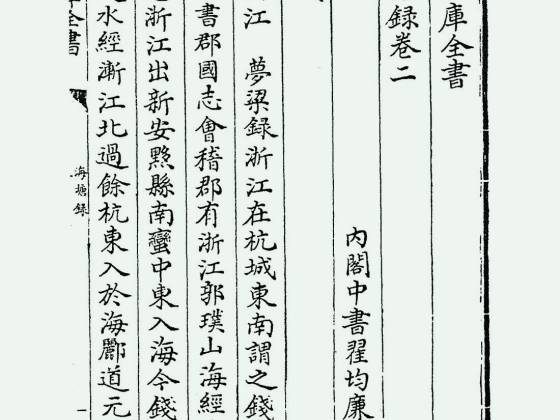 庫全書
録卷二
内閣中書翟均廉
江　夢粱録浙江在杭城東南謂之錢
書郡國志會稽郡有浙江郭璞山海經
浙江出新安黟縣南蠻中東入海今錢
水經漸江北過餘杭東入於海酈道元
全書
海塘録
一